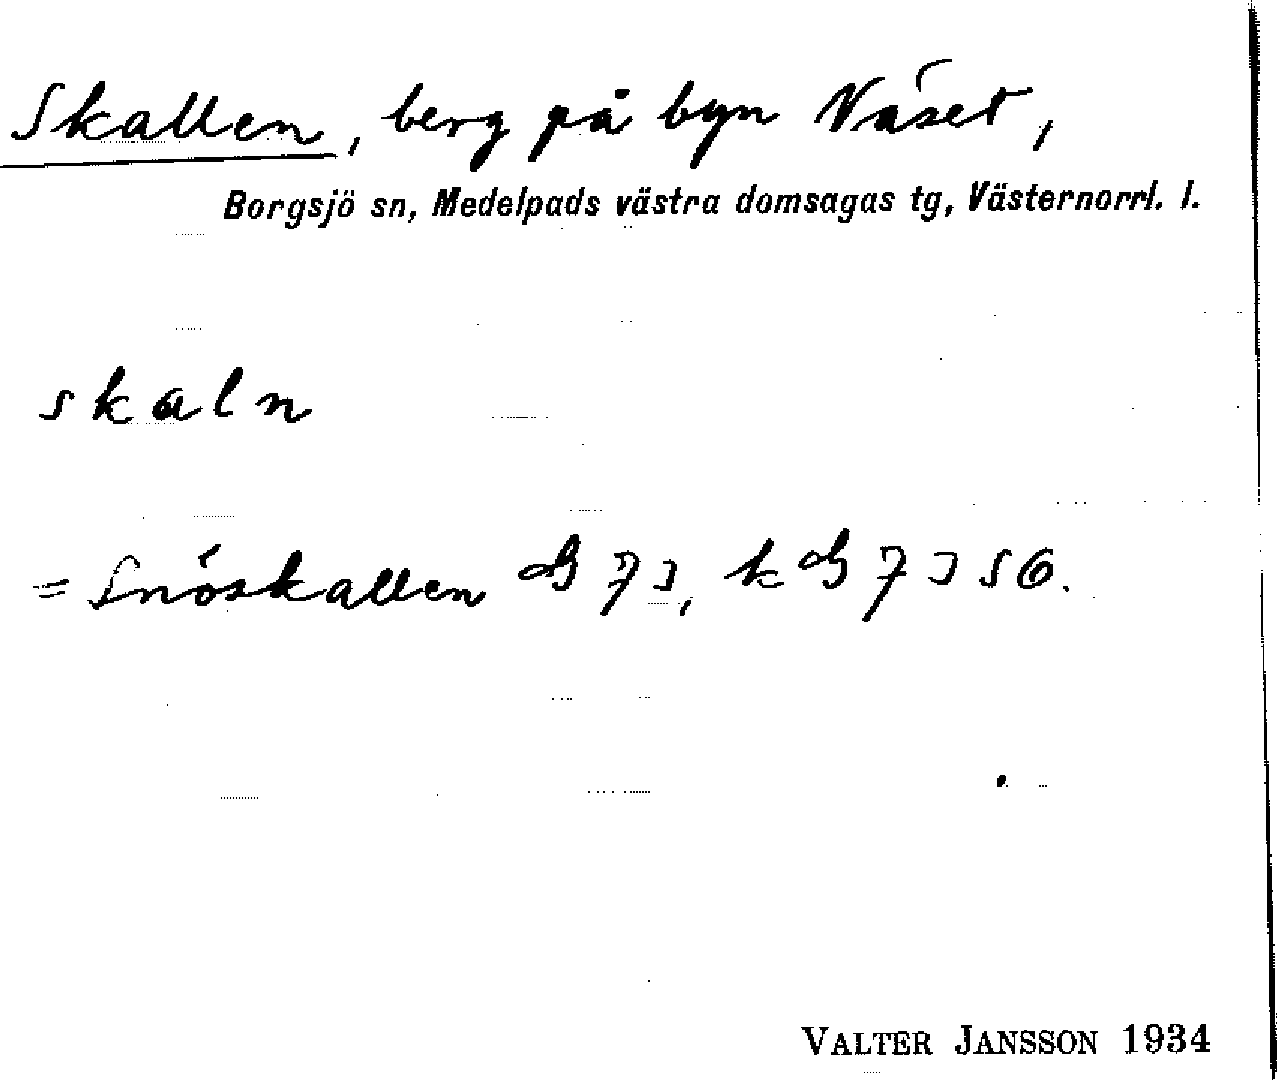 Skallen, berg på byn Näset,
Borgsjö sn, Medelpads västra domsagas tg, Västernorrl. l.
skaln
= Snöskallen
VALTER JANSSON 1934